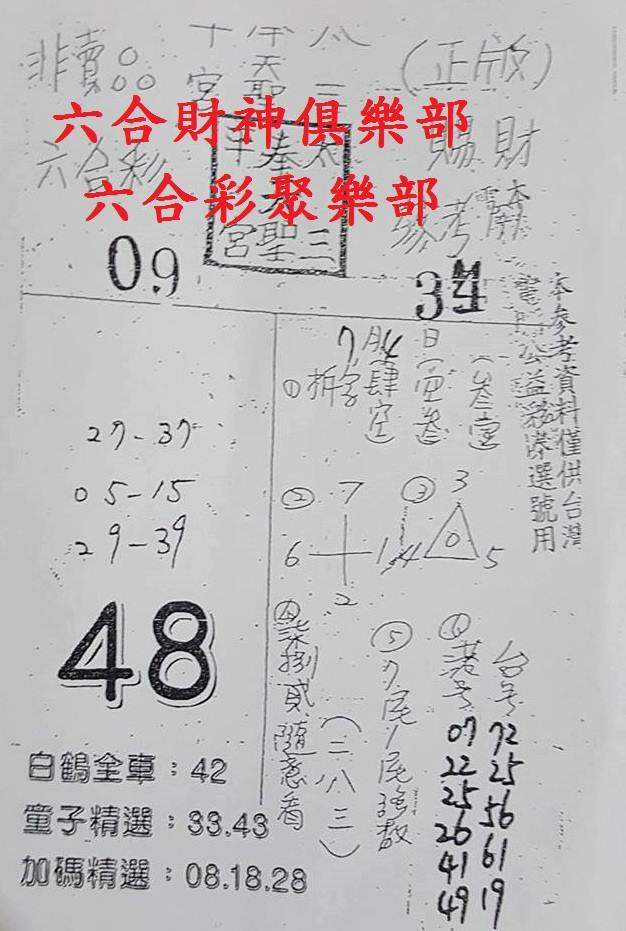 十 天 八
非賣品 宮 聖 三 (正版)
六合財神俱樂部
六合彩 賜財
六合彩聚樂部
參考
宮聖三
09
34
本參考資料僅供台灣
電腦公益彩券選號用
① 拆字
② 7
6 1
2
③ 3
4 0 5
27-37
05-15
29-39
48
④ 柒捌貳隨意看
(二八三)
⑤ 7尾1尾強數
⑥ 港号 台号
07 72
22 25
25 56
26 61
41 19
49
白鶴全車:42
童子精選:33.43
加碼精選:08.18.28